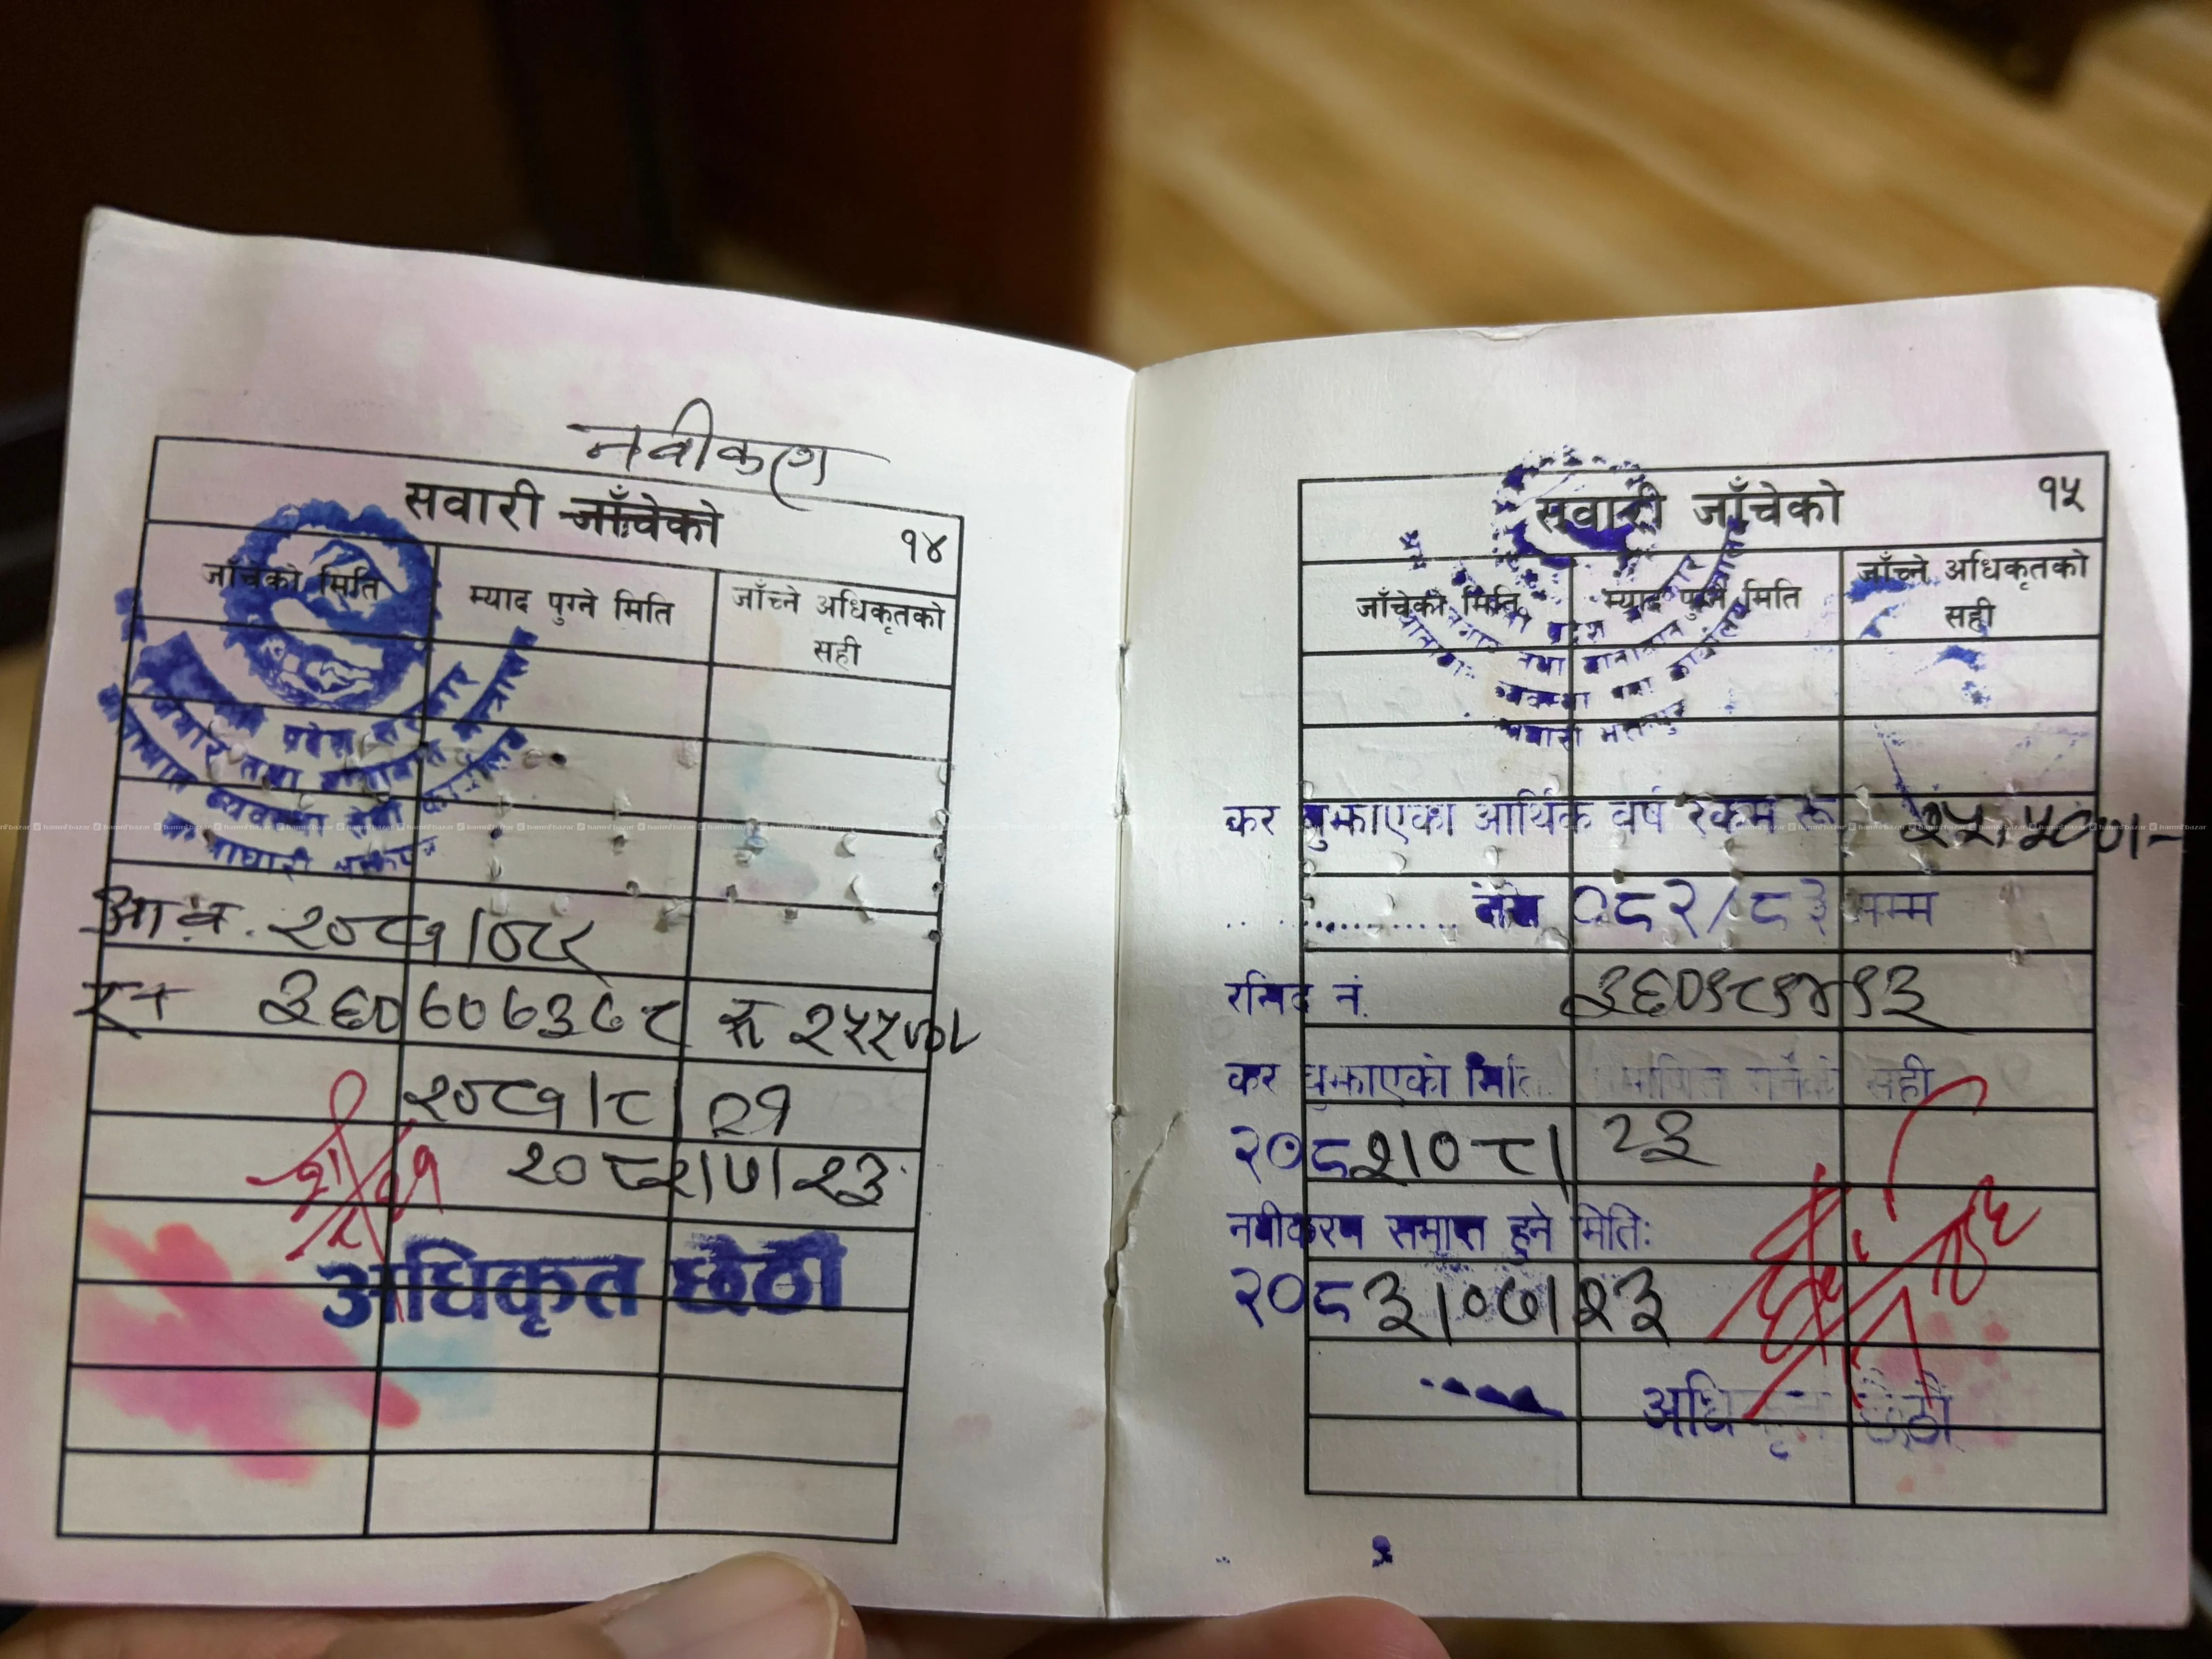 नवीकरण
सवारी जाँचेको १४
जाँचेको मिति म्याद पुग्ने मिति जाँच्ने अधिकृतको सही
प्रदेश सरकार
आ.व. २०८१/०८२
र.नं ३६०६०६३८८ रु २५५००/-
२०८१/८/२१
२०८२/७/२३
अधिकृत छैठौं
सवारी जाँचेको १५
जाँचेको मिति म्याद पुग्ने मिति जाँच्ने अधिकृतको सही
कर बुझाएका आर्थिक वर्ष रकम रू २५,५००/-
०८२/८३ सम्म
रसिद नं.
कर बुझाएको मिति प्रमाणित गर्नेको सही
२०८२/०८/२३
नवीकरण समाप्त हुने मिति:
२०८३/०७/२३
अधिकृत छैठौं
hamrobazar